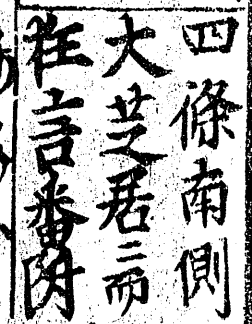 四條南側
大芝居ニ而
狂言番附